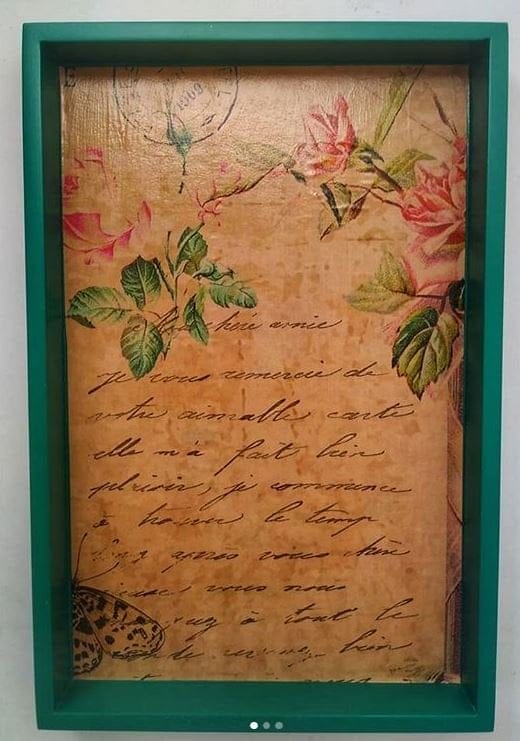 1909
chère amie
je vous remercie de
votre aimable carte
elle m'a fait bien
plisir, je commence
à trouver le temp
après vous chère
vous nous
à tout le
de bien